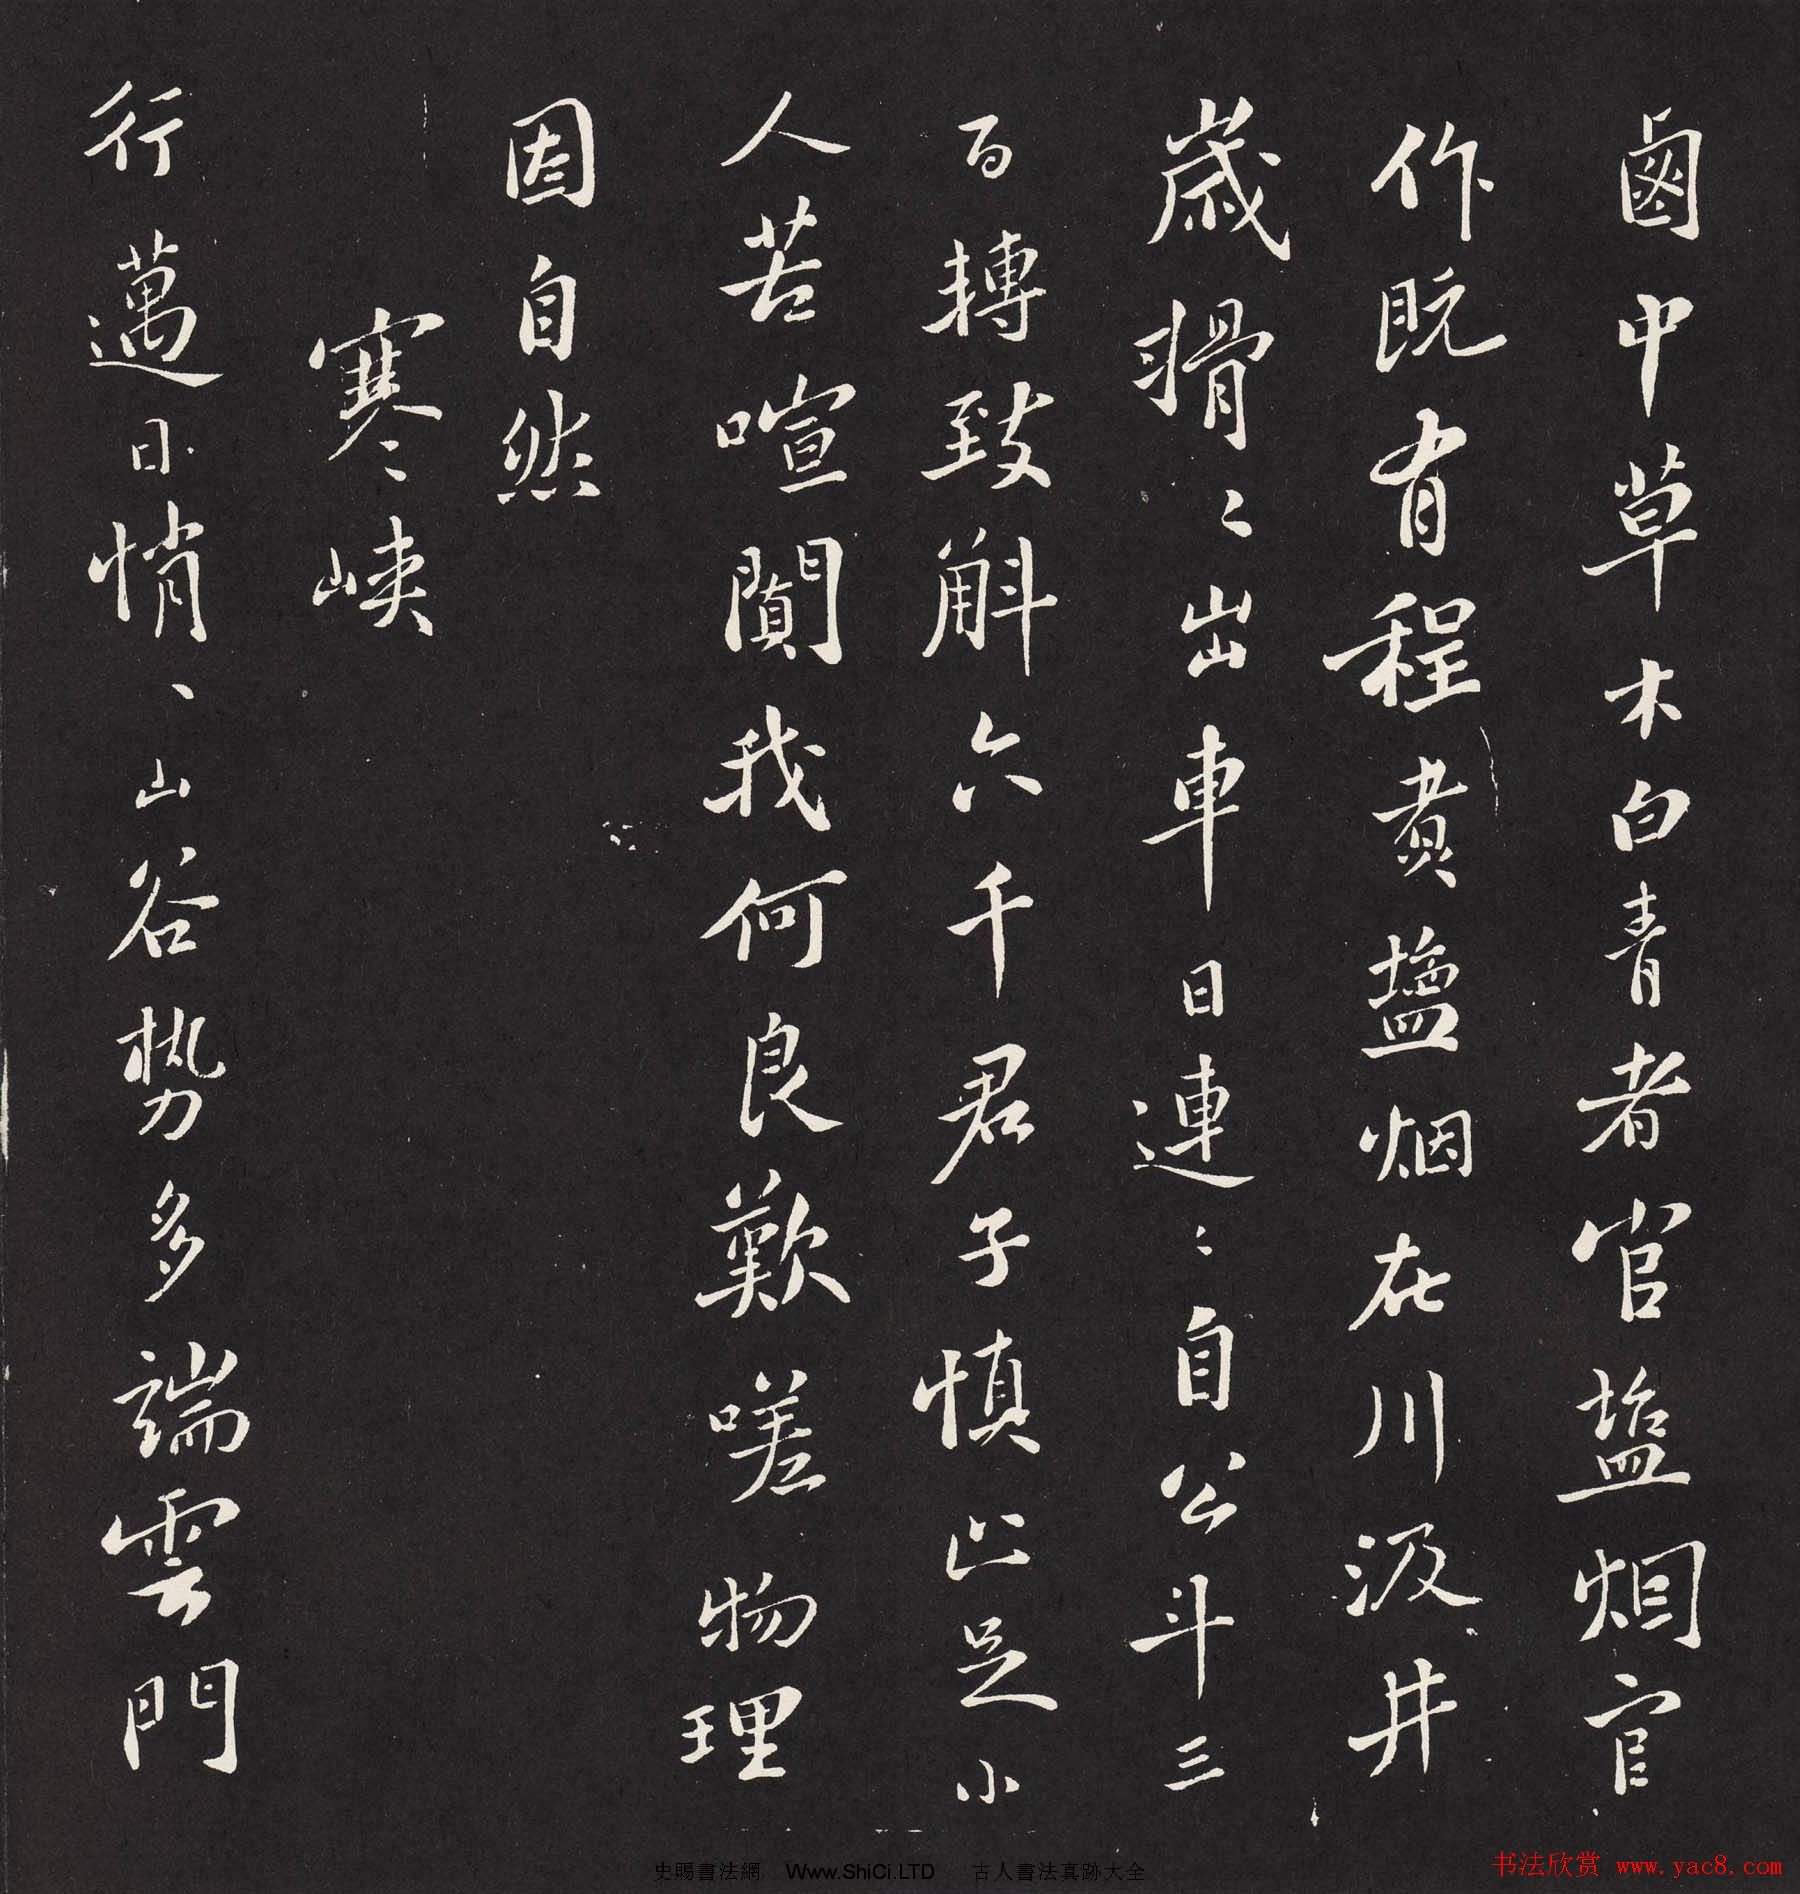 鹵中草木白青者官塩烟官
作既有程煑塩烟在川汲井
歲搰〻出車日連〻自公斗三
百轉致斛六千君子慎止足小
人苦喧闐我何良歎嗟物理
因自然
寒〻峽
行邁日悄〻山谷勢多端雲門
史賜書法網 Www.ShiCi.LTD 古人書法真跡大全
书法欣赏 www.yac8.com